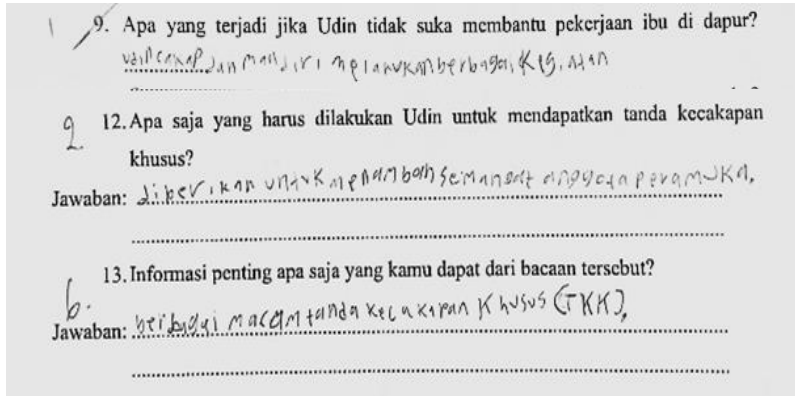 9. Apa yang terjadi jika Udin tidak suka membantu pekerjaan ibu di dapur?
Udin cakap dan mandiri melakukan berbagai kegiatan
2 12. Apa saja yang harus dilakukan Udin untuk mendapatkan tanda kecakapan
khusus?
Jawaban: diberikan untuk menambah semangat anggota peramuka,
13. Informasi penting apa saja yang kamu dapat dari bacaan tersebut?
6.
Jawaban: berbagai macam tanda kecakapan Khusus (TKK),